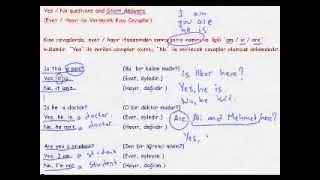 Yes / No questions and Short Answers
(Evet / Hayır ile Verilecek Kısa Cevaplar)
Kısa cevaplarda, evet / hayır ifadesinden sonra özne ile ilgili "am / is / are"
kullanılır. "Yes" ile verilen cevaplar olumlu, "No" ile verilecek cevaplar olumsuz anlamdadır.
Is this a pen?
(Bu bir kalem midir?)
Yes, it is.
(Evet, öyledir.)
No, it isn't.
(Hayır, değildir.)
Is he a doctor?
(O bir doktor mudur?)
Yes, he is a doctor.
(Evet, öyledir.)
No, he isn't. doctor.
(Hayır, değildir.)
Are you a student?
(Sen bir öğrenci misin?)
Yes, I am. student
(Evet, öyledir.)
No, I'm not. student.
(Hayır, değildir.)
I am
you are
he is
Is İlker here?
Yes, he is.
No, he isn't.
Are Ali and Mehmet here?
Yes,